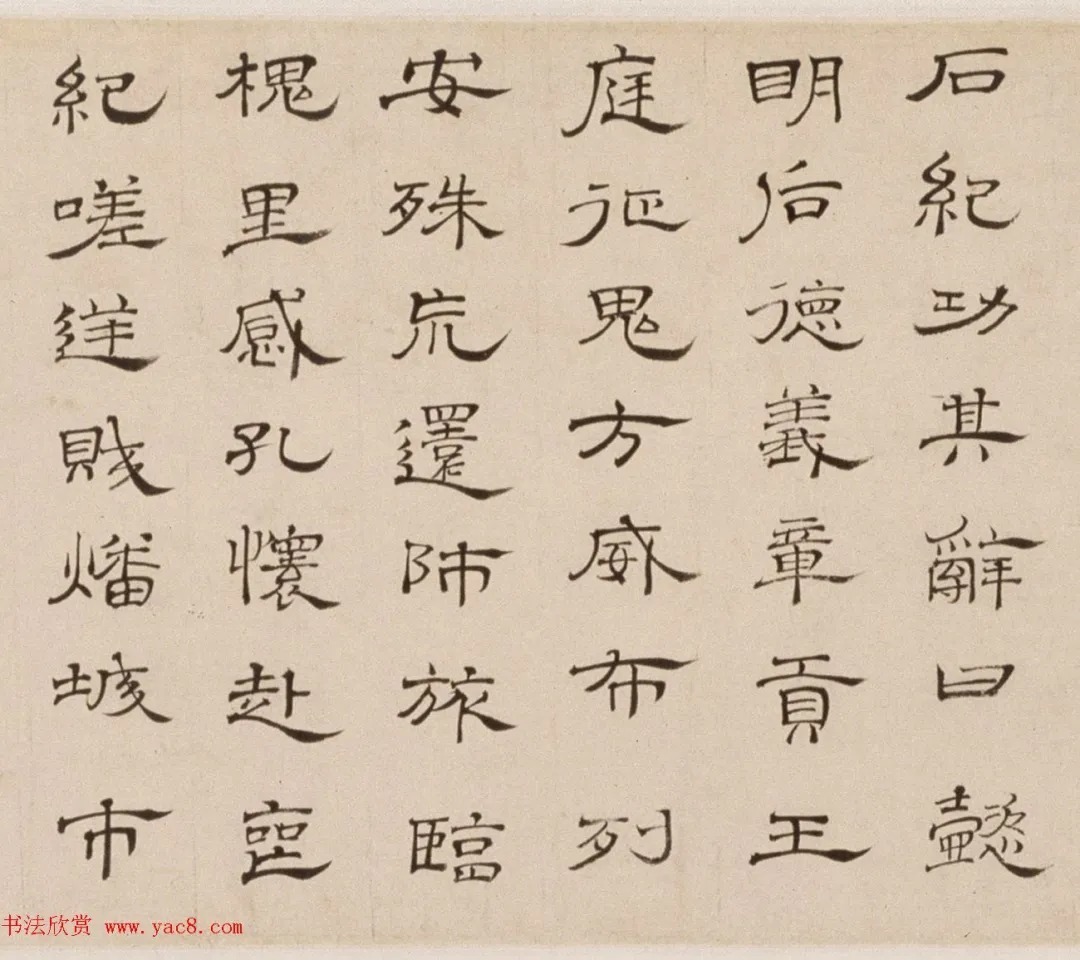 石紀功其辭曰懿
明后德義章貢王
庭征鬼方威布列
安殊荒還師旅臨
槐里感孔懷赴喪
紀嗟逆賊燔城市
书法欣赏 www.yac8.com